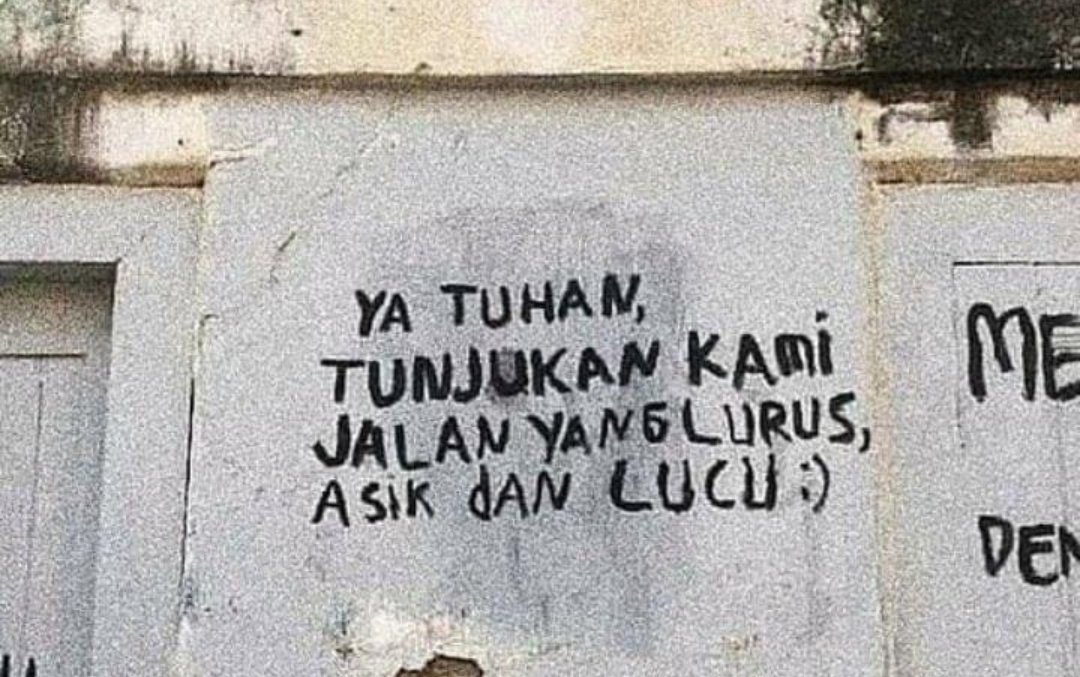 YA TUHAN,
TUNJUKAN KAMi
JALAN YANG LURUS,
ASiK dAN LUCU :)